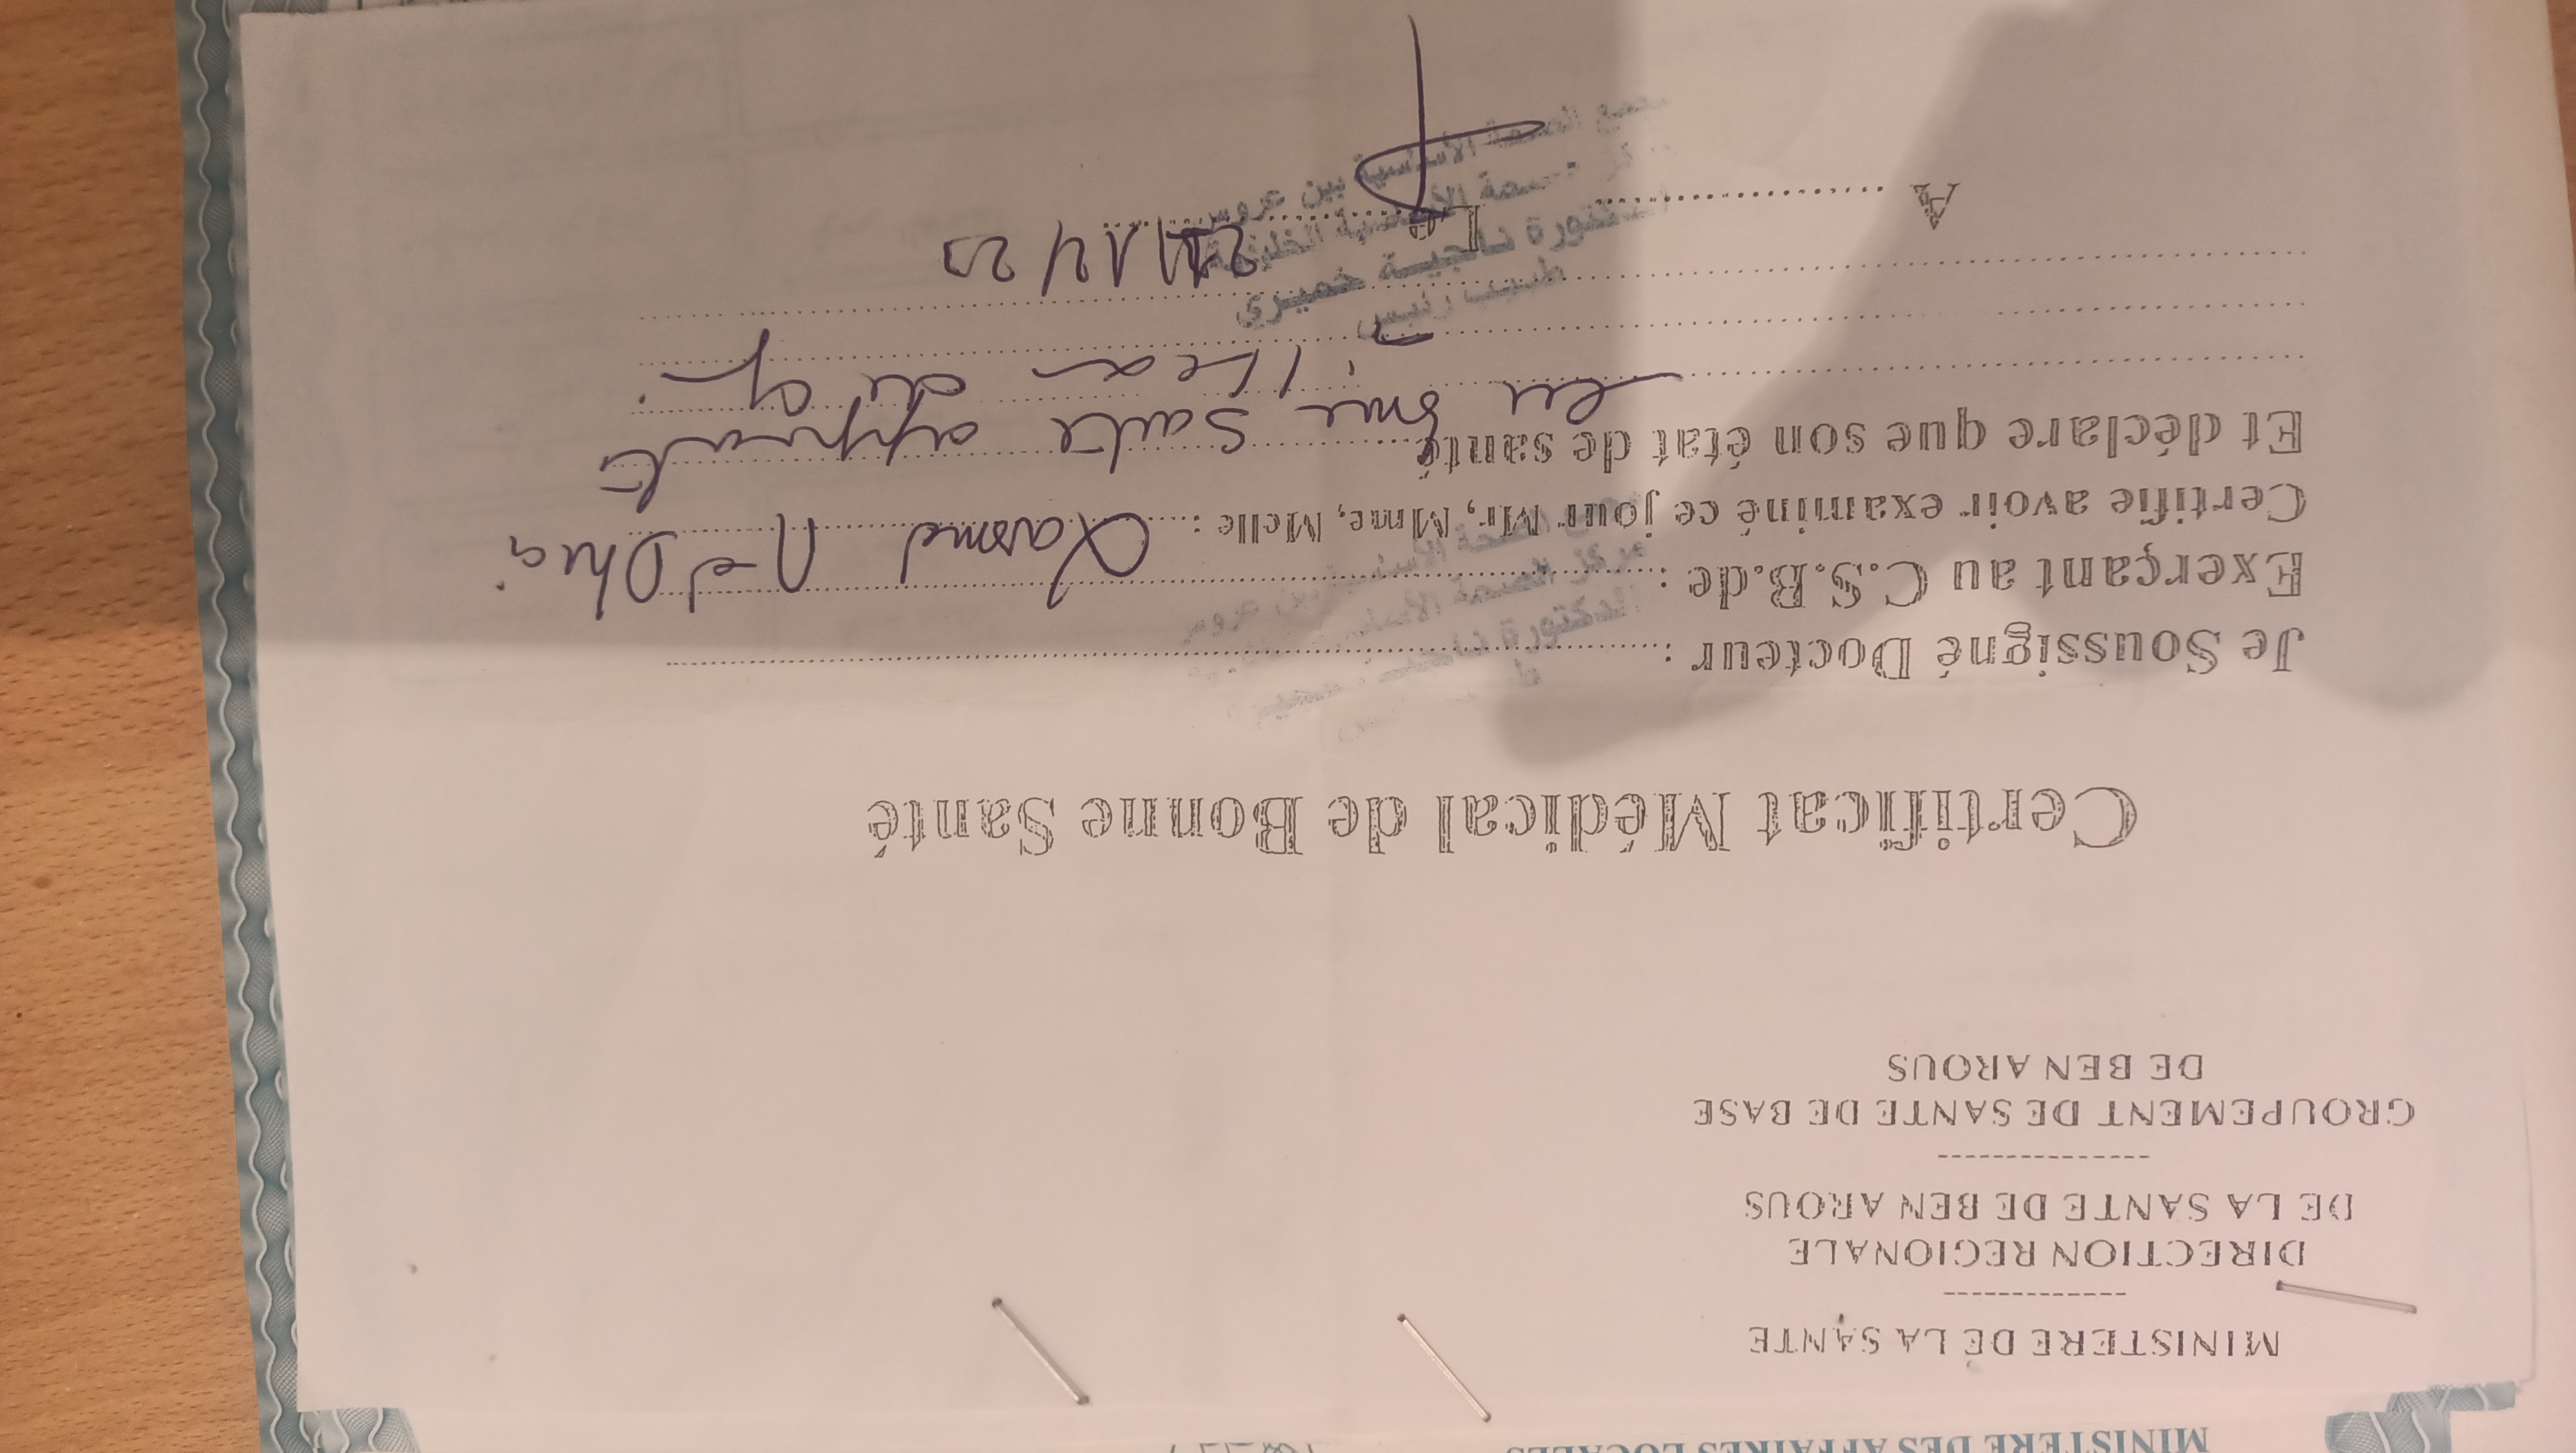 MINISTERE DES AFFAIRES LOCALES
MINISTERE DE LA SANTE
-------------
DIRECTION REGIONALE
DE LA SANTE DE BEN AROUS
---------------
GROUPEMENT DE SANTE DE BASE
DE BEN AROUS
Certificat Médical de Bonne Santé
Je Soussigné Docteur :
الدكتورة
Exerçant au C.S.B.de :
مركز الصحة
بن عروس
Certifie avoir examiné ce jour Mr, Mme, Melle :
Dhia
Et déclare que son état de santé
en bonne santé apparente
طبيب رئيس
الدكتورة ناجية خميري
A Le
مركز الصحة الأساسية
مجمع الصحة الأساسية ببن عروس